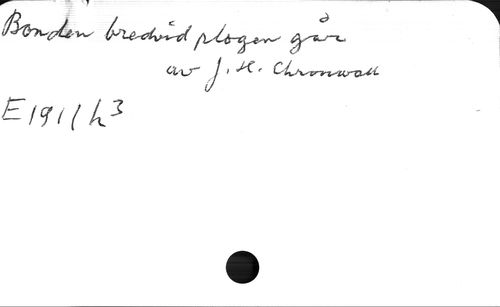 Bonden bredvid plogen går
av J. H. Chronwall
E 191 / h3